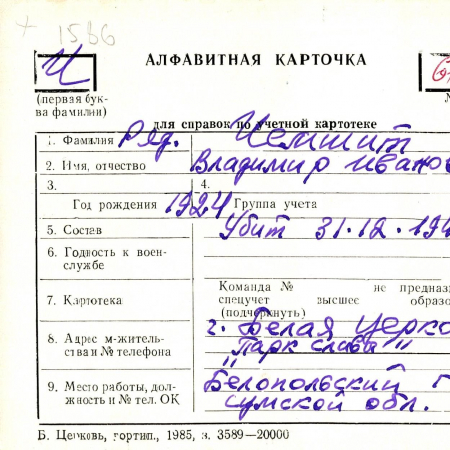 1586
И
АЛФАВИТНАЯ КАРТОЧКА
(первая бук-
ва фамилии)
для справок по учетной картотеке
1. Фамилия Ряд.
2. Имя, отчество Владимир Ивано
3. 4.
Год рождения 1924 Группа учета
5. Состав Убит 31.12.194
6. Годность к воен-
службе
7. Картотека
Команда № не предназ
спецучет высшее образо
(подчеркнуть)
8. Адрес м-житель-
ства и № телефона
г. Белая Церко
"Парк славы"
9. Место работы, дол-
жность и № тел. ОК
Белопольский
Сумской обл.
Б. Церковь, гортип., 1985, з. 3589—20000